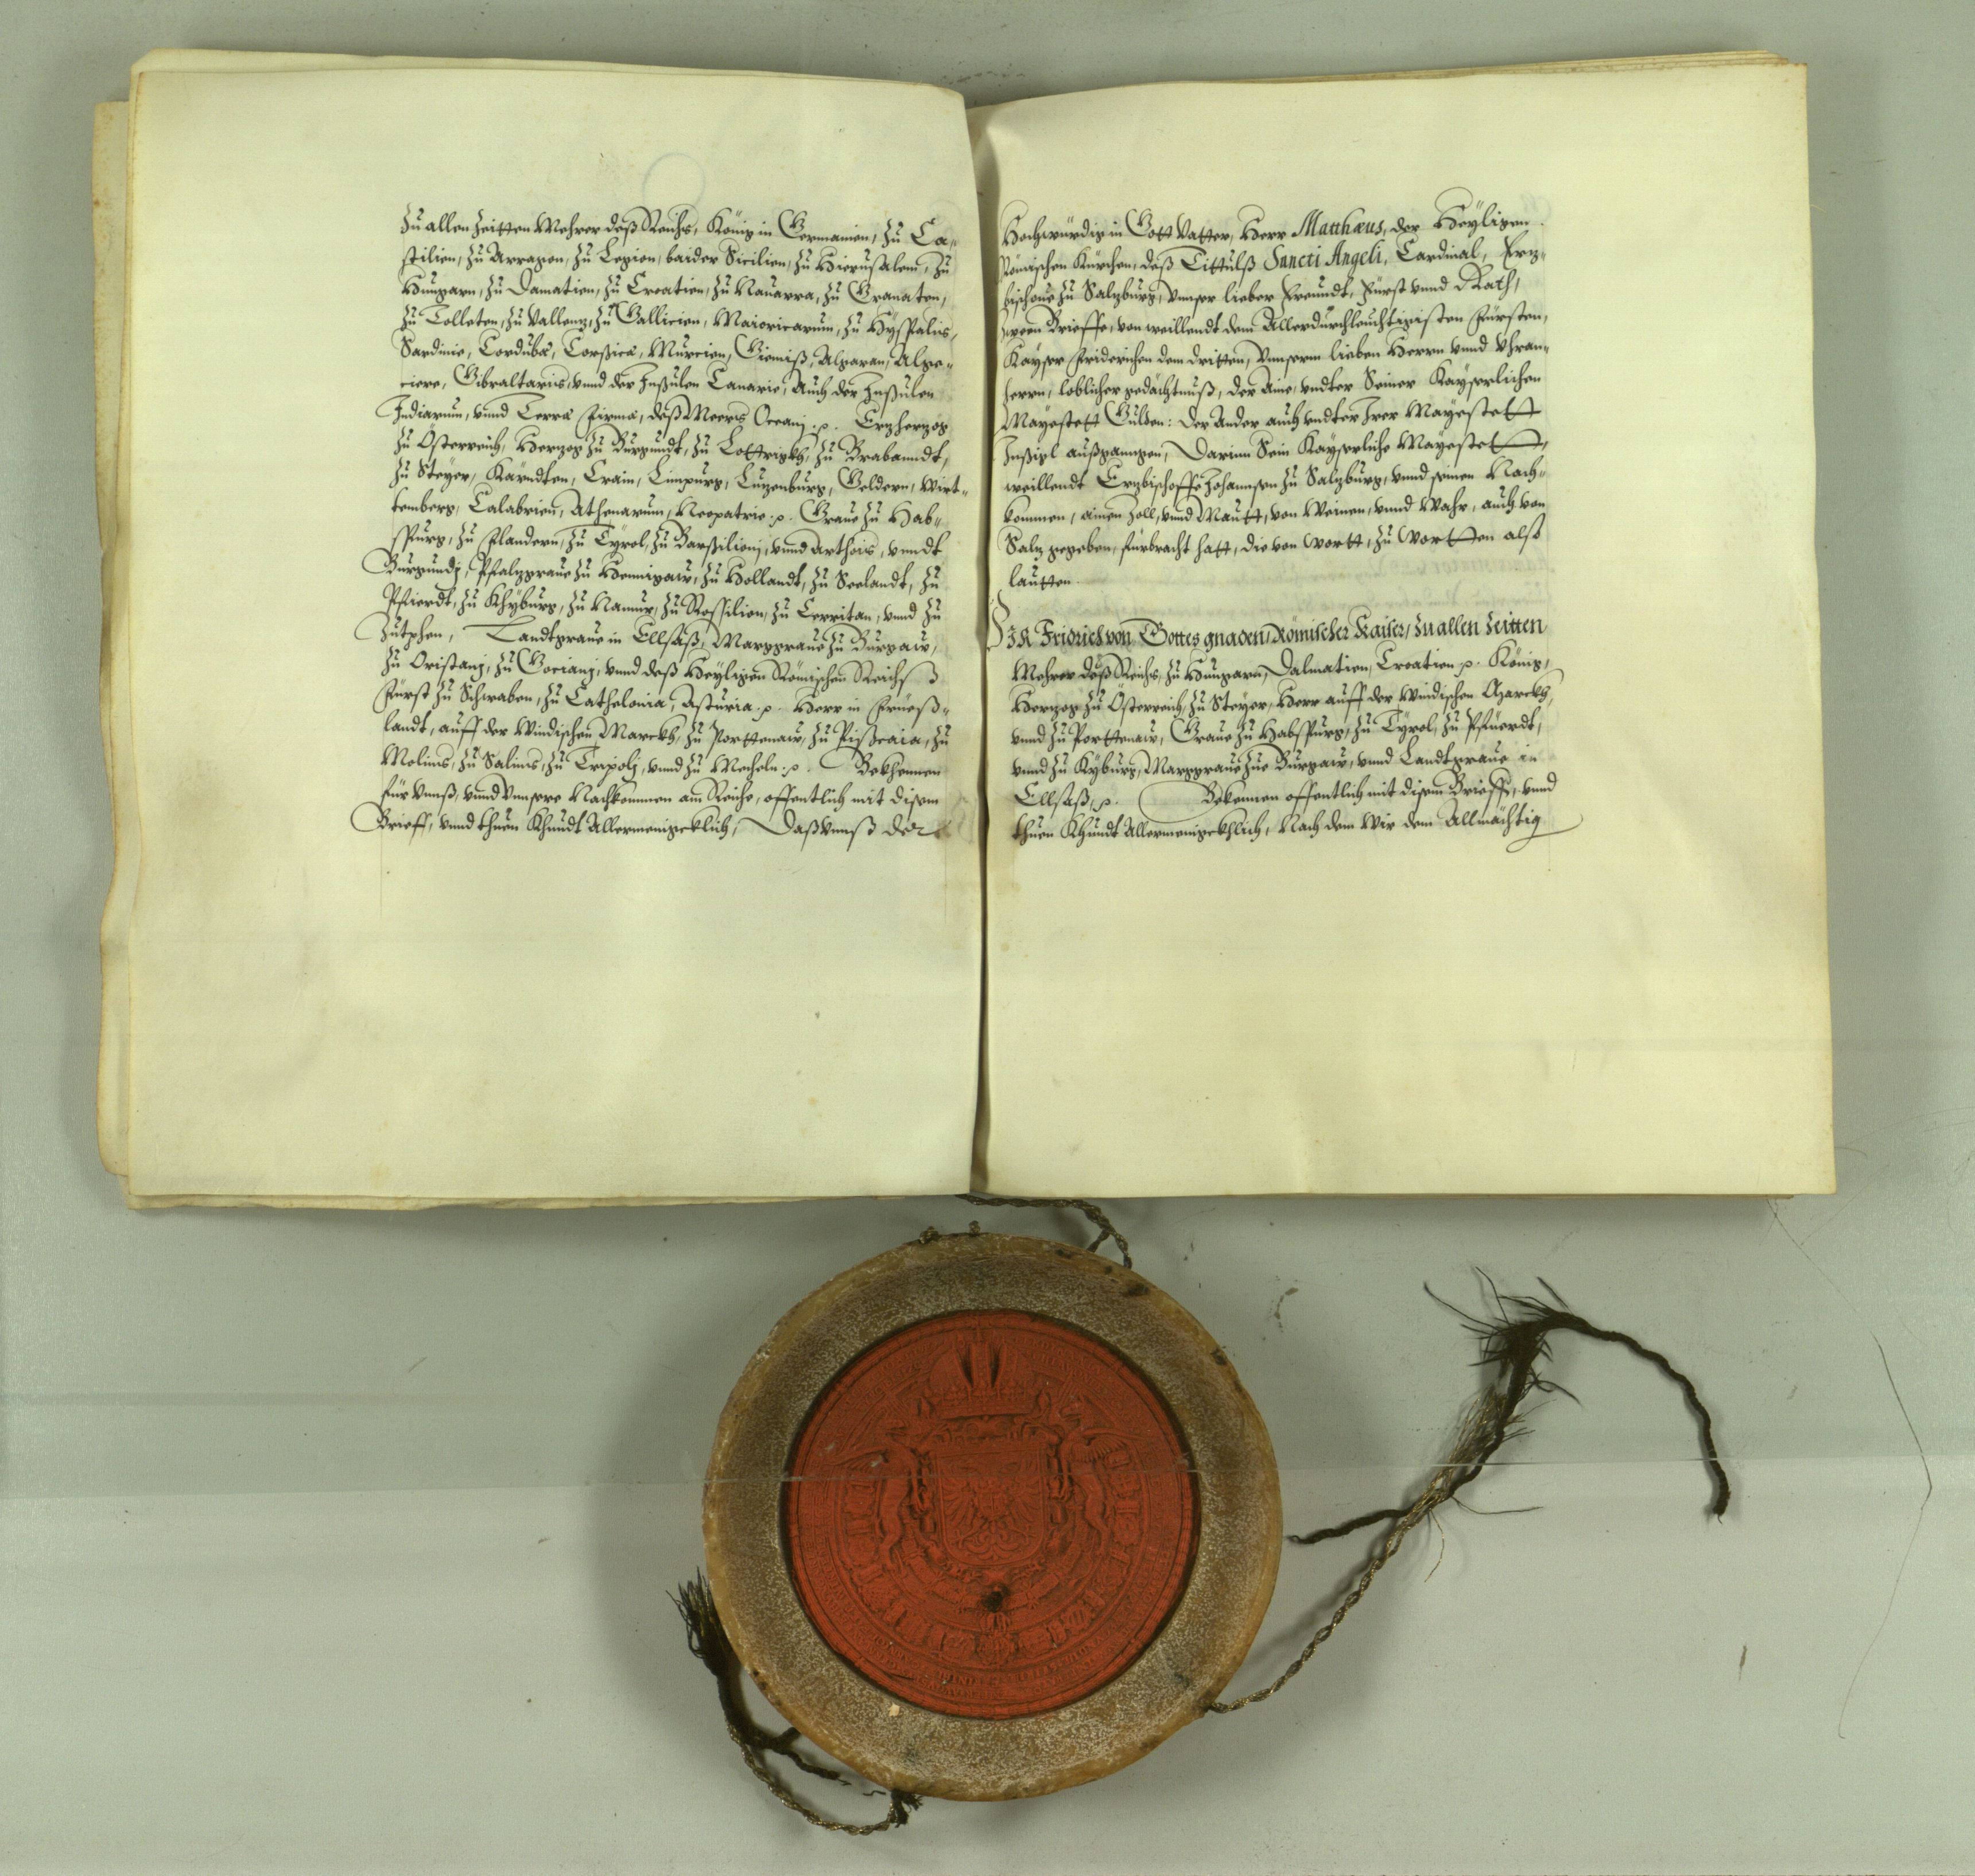 zu allen Zeitten Mehrer deß Reichs, König in Germanien, zu Ca-
stilien, zu Arragon, zu Legion, baider Sicilien, zu Hierusalem, zu
Hungarn, zu Damatien, zu Croatien, zu Nauarra, zu Granaten,
zu Tolleten, zu Vallenz, zu Gallicien, Maioricarum, zu Hyspalis,
Sardinie, Corduba, Corsica, Murcien, Giemiß, Algaran, Alge-
ciere, Gibraltaris, vnnd der Insulen Canarie, Auch der Insulen
Indiarum, vnnd Terra firma, deß Meers Oceanj :p. Erzherzog
zu Österreich, Herzog zu Burgundt, zu Lottrigkh, zu Brabanndt,
zu Steyer, Kärndten, Crain, Limpurg, Luzenburg, Geldern, Wirt-
temberg, Calabrien, Athenarum, Neopatrie :p. Graue zu Hab-
spurg, zu Flandern, zu Tyrol, zu Barsilionj, vnnd Arthois, vnndt
Burgundj, Pfalzgraue zu Hennigaw, zu Hollandt, zu Seelandt, zu
Pfierdt, zu Khyburg, zu Namur, zu Rossilion, zu Cerritan, vnnd zu
Zutphen, Landtgraue in Ellsäß, Marggraue zu Burgaw,
zu Oristanj, zu Gocianj, vnnd deß Heyligen Römischen Reichs
Fürst zu Schwaben, zu Cathelonia, Asturia .p. Herr in Frieß-
landt, auff der Windischen Marckh, zu Porttenaw, zu Pißcaia, zu
Molins, zu Salins, zu Tripolj, vnnd zu Mecheln :p. Bekhennen
für Vnnß, vnnd Vnnsere Nachkommen am Reiche, offentlich mit disem
Brieff, vnnd thuen Khundt Allermenigcklich, Daß Vnnß der
Hochwürdig in Gott Vatter, Herr Matthæus, der Heyligen
Römischen Kürchen, deß Tittulß Sancti Angeli, Cardinal, Erz-
bischoue zu Salzburg, Vnnser lieber Freundt, Fürst vnnd Rath,
zween Brieffe, von weillendt dem Allerdurchleuchtigisten Fürsten,
Kayser Friderichen dem dritten, Vnnserm lieben Herrn vnnd Vhran-
herrn, loblicher gedächtnuß, der Aine, vndter Seiner Kayserlichen
Mayestett Gulden: der Ander auch vndter Irer Mayestett
Insigl außgangen, Darinn Sein Kayserliche Mayestett,
weillendt Erzbischoffe Johannsen zu Salzburg, vnnd seinen Nach-
kommen, ainen Zoll, vnnd Mautt, von Weinen, vnnd Wahr, auch von
Salz gegeben, fürbracht hatt, die von Wortt, zu Wortten also
lautten.
Wir Fridrich von Gottes gnaden, Römischer Kaiser, zu allen Zeitten
Mehrer deß Reichs, zu Hungarn, Dalmatien, Croatien .p. König,
Herzog zu Österreich, zu Steyer, Herr auff der Windischen Marckh,
vnnd zu Porttenaw, Graue zu Habspurg, zu Tyrol, zu Pfierdt,
vnnd zu Kyburg, Marggraue zue Burgaw, vnnd Landtgraue in
Ellsäß .p. Bekennen offentlich mit disem Brieffe, vnnd
thuen Khundt Allermenigckhlich, Nach dem Wir dem Allmächtig